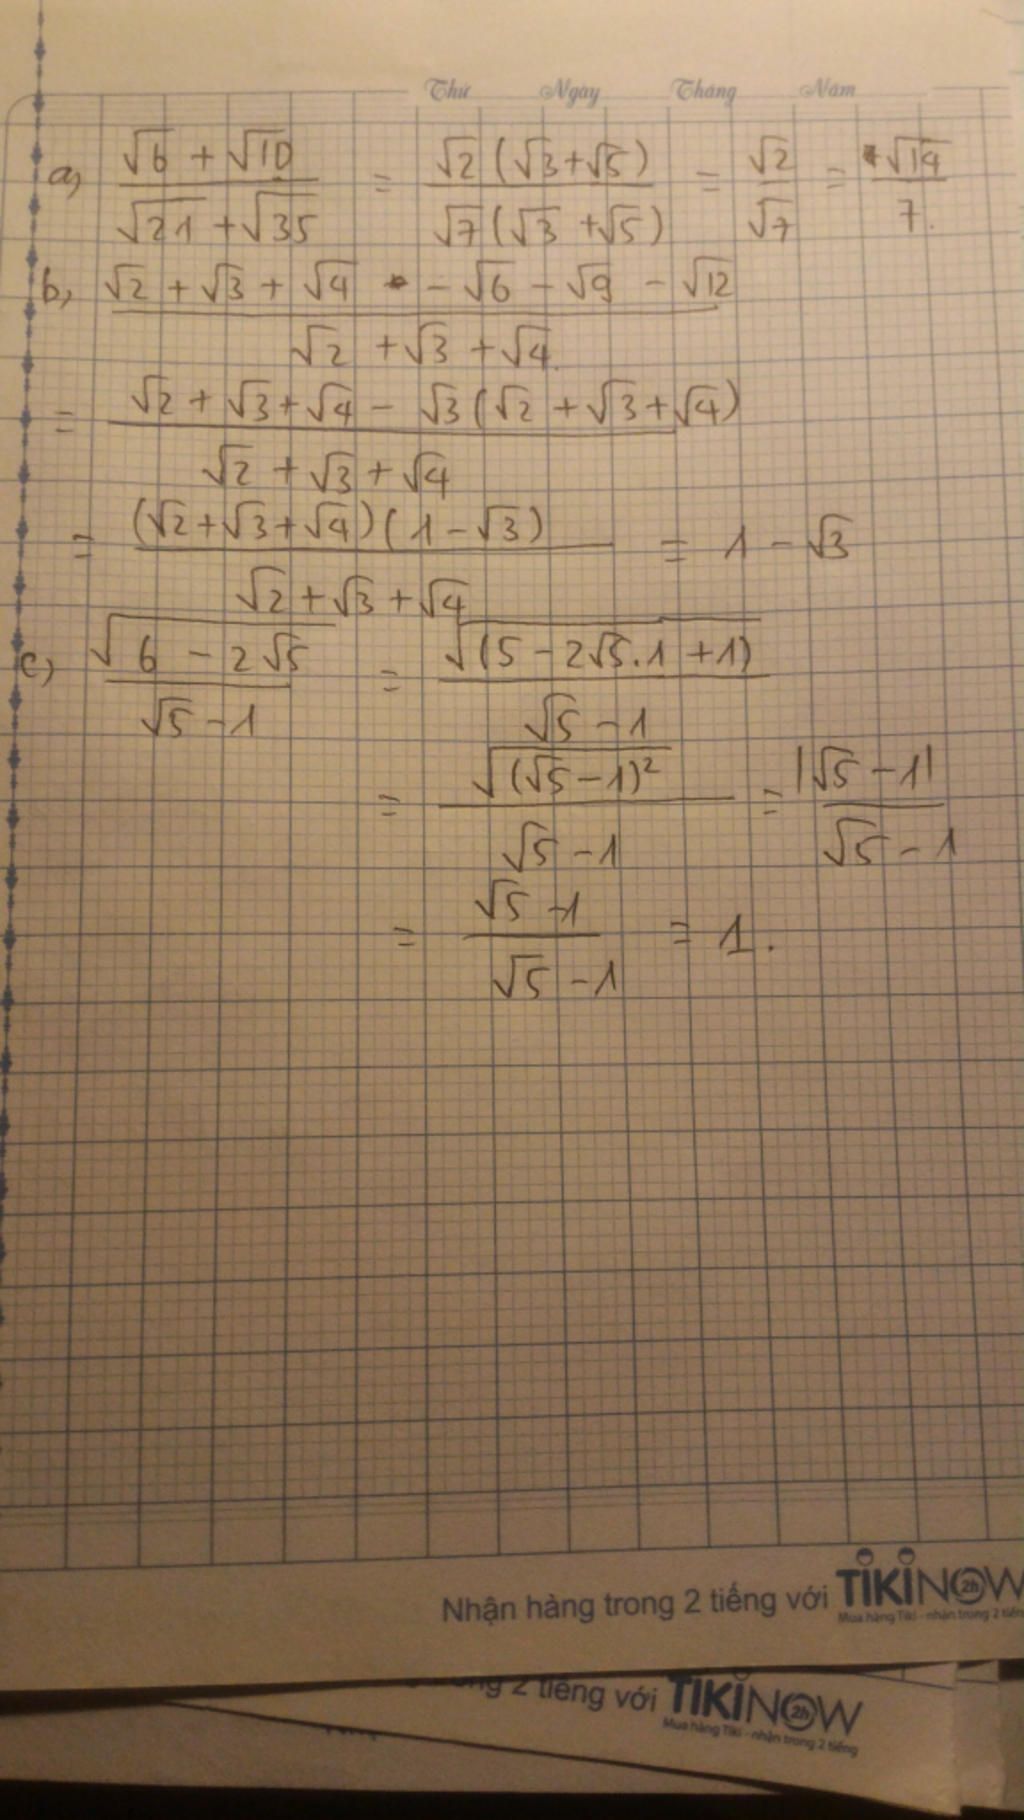 Thứ Ngày Tháng Năm
a, (√6 + √10)/(√21 + √35) = (√2 (√3+√5))/(√7 (√3 +√5)) = √2/√7 = √14/7.
b, (√2 + √3 + √4 - √6 - √9 - √12)/(√2 + √3 + √4)
= (√2 + √3 + √4 - √3 (√2 + √3 + √4))/(√2 + √3 + √4)
= ((√2+√3+√4)(1-√3))/(√2 + √3 + √4) = 1 - √3
c, √(6 - 2√5)/(√5 - 1) = √((5 - 2√5.1 + 1))/(√5 - 1)
= √((√5 - 1)²)/(√5 - 1) = |√5 - 1|/(√5 - 1)
= (√5 - 1)/(√5 - 1) = 1.
Nhận hàng trong 2 tiếng với TIKINOW 2h
Mua hàng Tiki - nhận trong 2 tiếng
2 tiếng với TIKINOW 2h
Mua hàng Tiki - nhận trong 2 tiếng